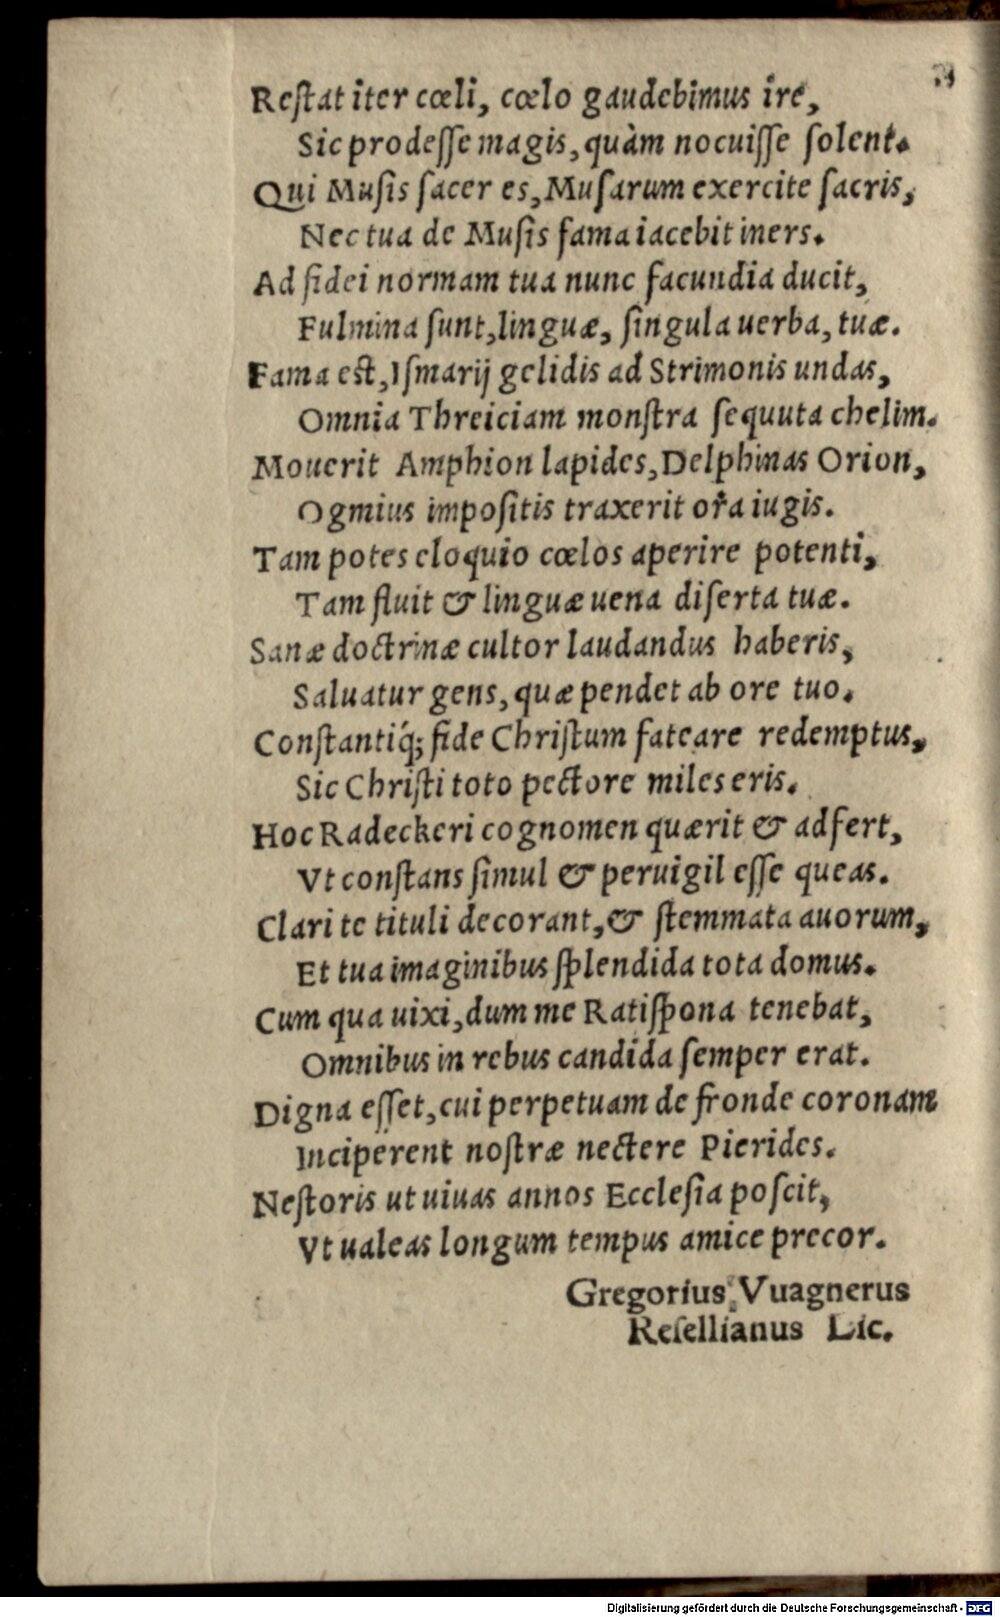 Reſtat iter cœli, cœlo gaudebimus ire,
Sic prodeſſe magis, quàm nocuiſſe ſolent.
Qui Muſis ſacer es, Muſarum exercite ſacris,
Nec tua de Muſis fama iacebit iners.
Ad fidei normam tua nunc facundia ducit,
Fulmina ſunt, linguæ, ſingula uerba, tuæ.
Fama eſt, Iſmarij gelidis ad Strimonis undas,
Omnia Threiciam monſtra ſequuta chelim.
Mouerit Amphion lapides, Delphinas Orion,
Ogmius impoſitis traxerit ora iugis.
Tam potes eloquio cœlos aperire potenti,
Tam fluit & linguæ uena diſerta tuæ.
Sanæ doctrinæ cultor laudandus haberis,
Saluatur gens, quæ pendet ab ore tuo.
Conſtantiq́; fide Chriſtum fateare redemptus,
Sic Chriſti toto pectore miles eris.
Hoc Radeckeri cognomen quærit & adfert,
Vt conſtans ſimul & peruigil eſſe queas.
Clari te tituli decorant, & ſtemmata auorum,
Et tua imaginibus ſplendida tota domus.
Cum qua uixi, dum me Ratiſpona tenebat,
Omnibus in rebus candida ſemper erat.
Digna eſſet, cui perpetuam de fronde coronam
Inciperent noſtræ nectere Pierides.
Neſtoris ut uiuas annos Eccleſia poſcit,
Vt ualeas longum tempus amice precor.
Gregorius Vuagnerus
Reſellianus Lic.
Digitalisierung gefördert durch die Deutsche Forschungsgemeinschaft - DFG